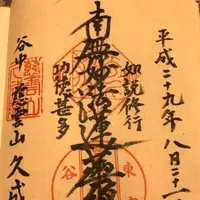 平成二十九年八月二十一
如説修行
南無妙法蓮華経
功徳甚多
谷中 慈雲山 久成